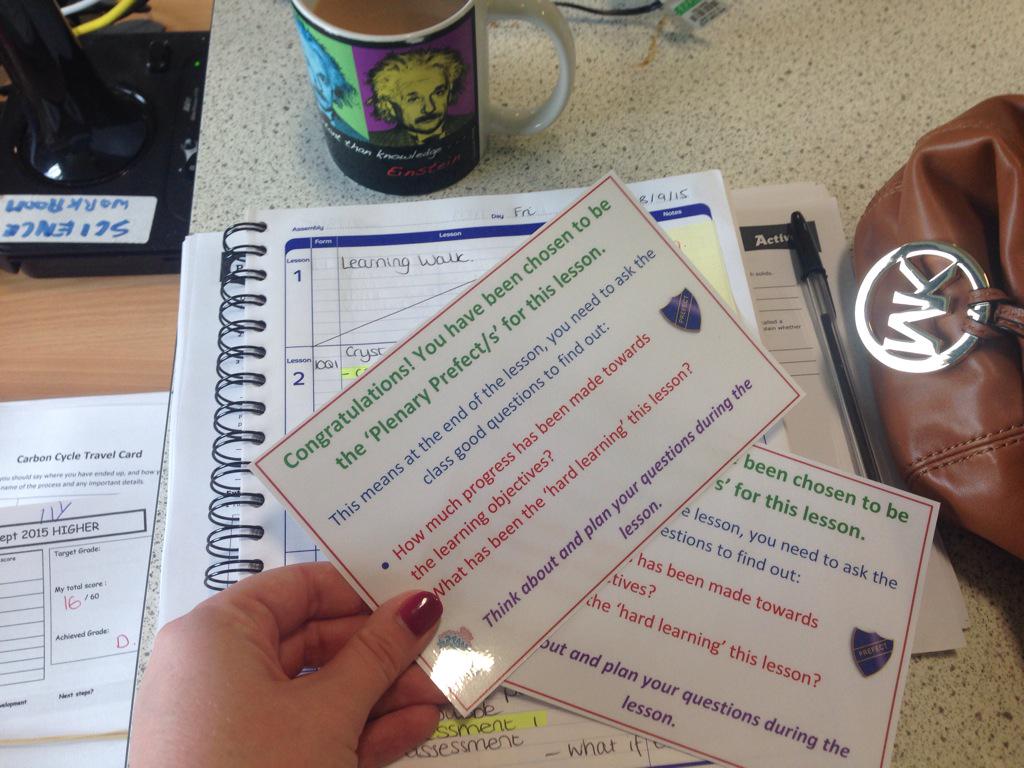 SCIENCE
WORKROOM
than knowledge...
Einstein
Assembly
Day Fri
8/9/15
Form
Lesson
Notes
Lesson
1
Learning Walk.
Lesson
2
10Q1
Cryst
Congratulations! You have been chosen to be
the 'Plenary Prefect/s' for this lesson.
This means at the end of the lesson, you need to ask the
class good questions to find out:
• How much progress has been made towards
the learning objectives?
What has been the 'hard learning' this lesson?
Think about and plan your questions during the
lesson.
PREFECT
been chosen to be
s' for this lesson.
e lesson, you need to ask the
estions to find out:
has been made towards
tives?
the 'hard learning' this lesson?
out and plan your questions during the
lesson.
PREFECT
ssment 1
assessment
- what if
Activ
solids.
called a
whether
MK
Carbon Cycle Travel Card
you should say where you have ended up, and how
name of the process and any important details.
11Y
ept 2015 HIGHER
score
Target Grade:
My total score :
16 / 60
Achieved Grade:
D.
elopment
Next steps?